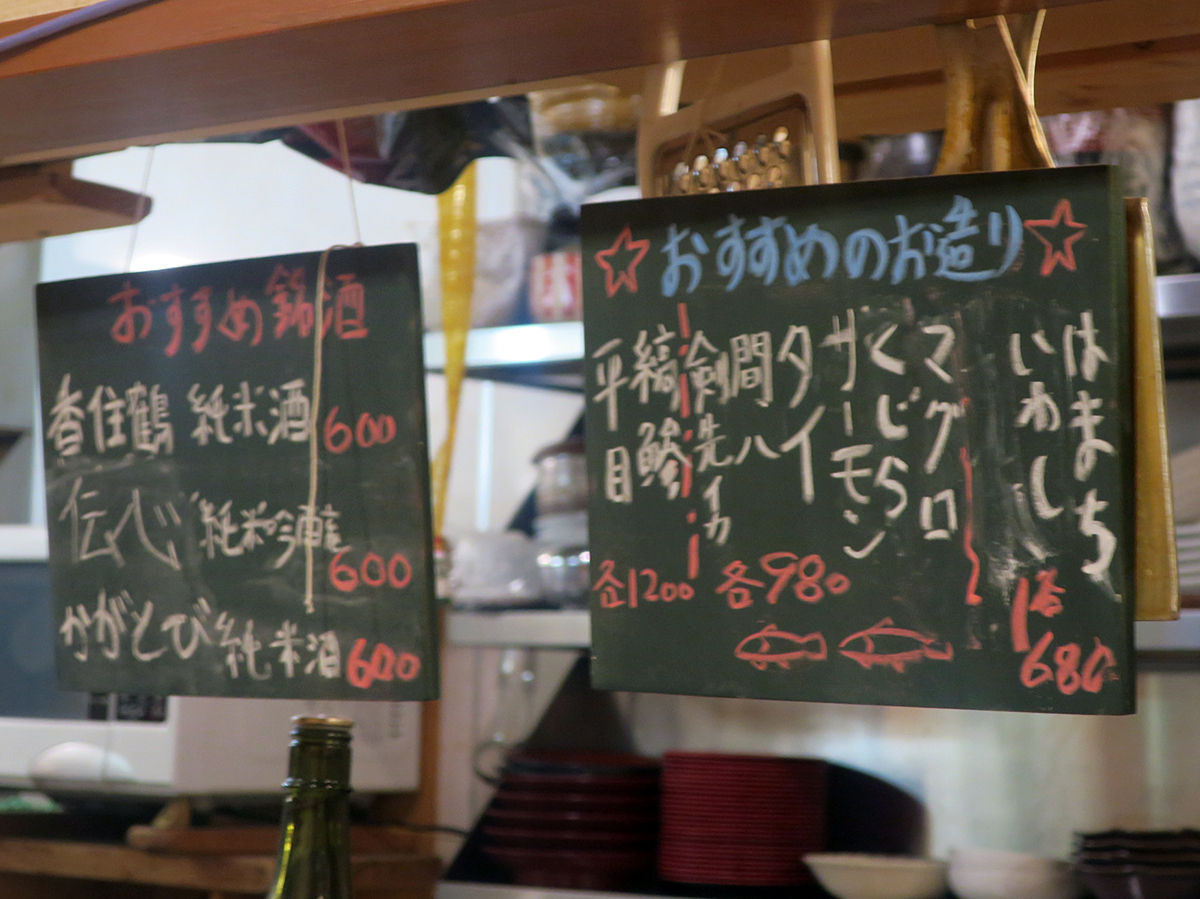 おすすめ銘酒
香住鶴 純米酒 600
伝心 純米吟醸 600
かがとび 純米酒 600
☆おすすめのお造り☆
はまち
いわし
各680
マグロ
くじら
サーモン
タイ
間八
剣先イカ
各980
縞鯵
平目
各1200